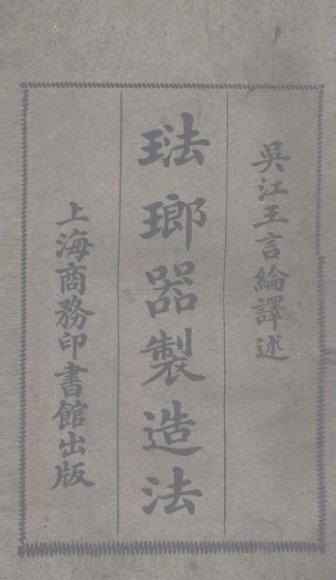 吳江王言綸譯述
琺瑯器製造法
上海商務印書館出版